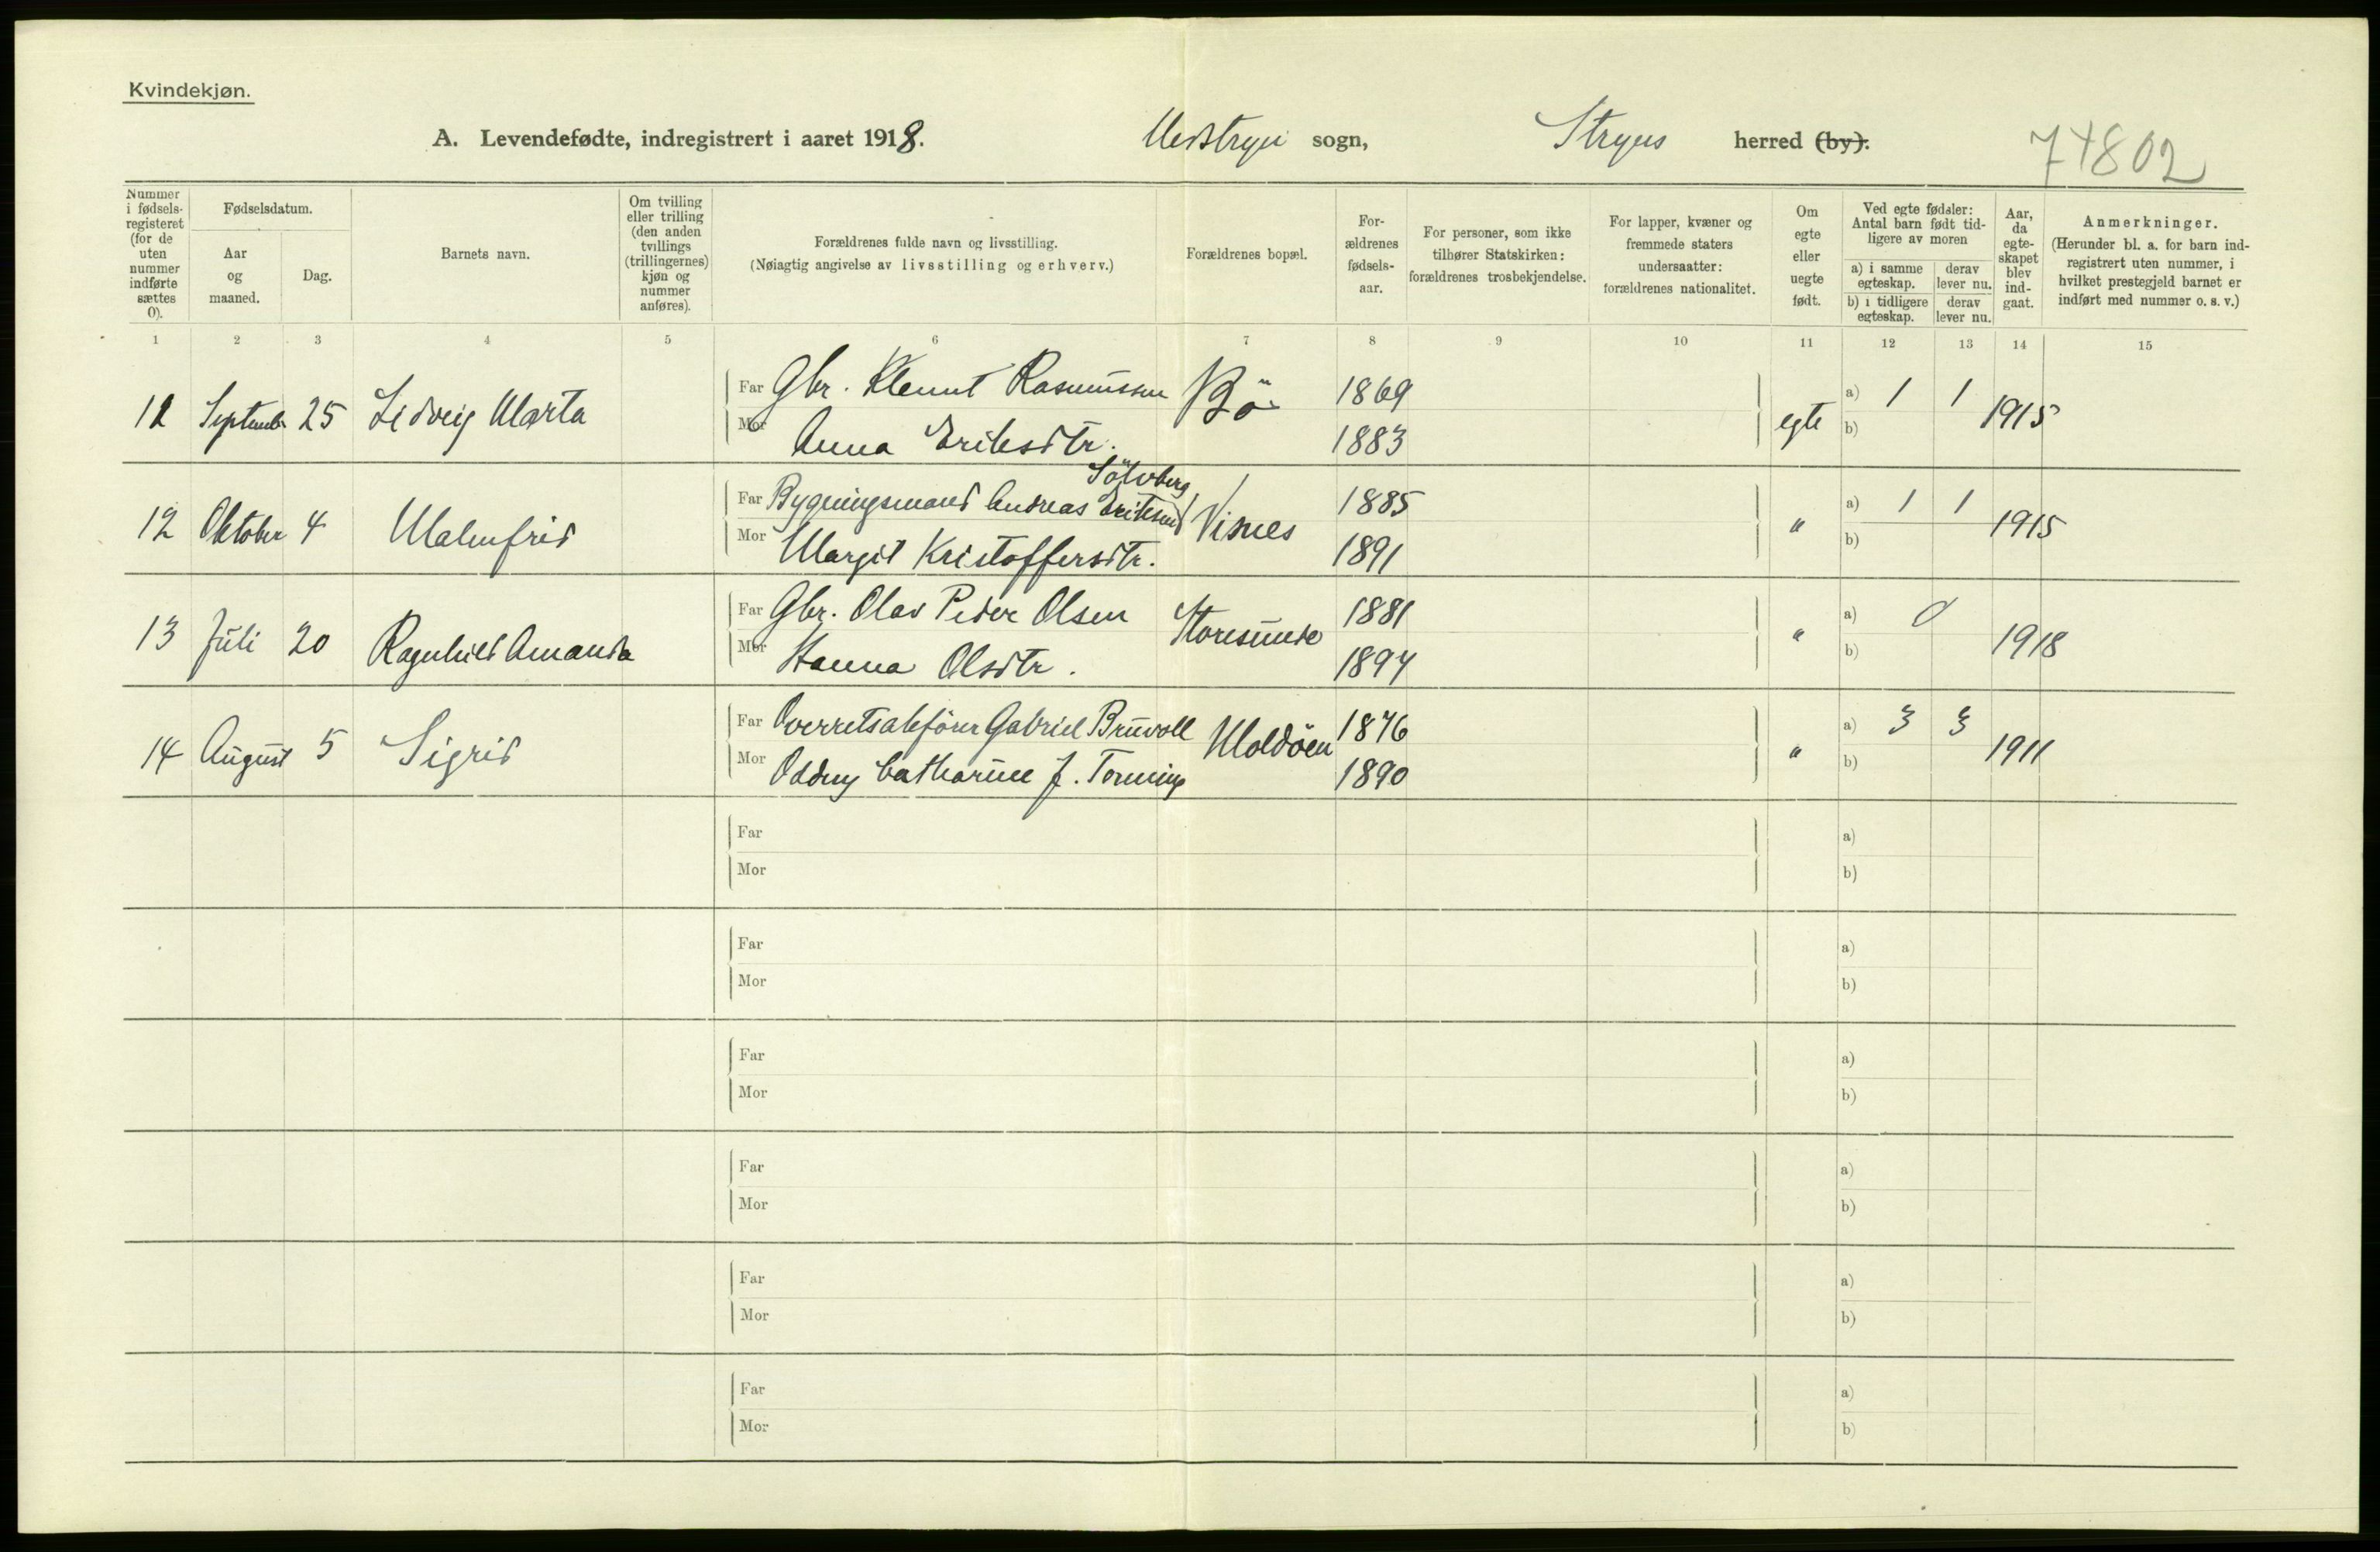 Kvindekjøn.
A. Levendefødte, indregistrert i aaret 1918. Nedstryn sogn, Stryns herred (by). 74802
Nummer i fødselsregisteret (for de uten nummer indførte sættes 0).
Fødselsdatum.
Aar og maaned.
Dag.
Barnets navn.
Om tvilling eller trilling (den anden tvillings (trillingernes) kjøn og nummer anføres).
Forældrenes fulde navn og livsstilling.
(Nøiagtig angivelse av livsstilling og erhverv.)
Forældrenes bopæl.
For-ældrenes fødsels-aar.
For personer, som ikke tilhører Statskirken: forældrenes trosbekjendelse.
For lapper, kvæner og fremmede staters undersaatter: forældrenes nationalitet.
Om egte eller uegte født.
Ved egte fødsler: Antal barn født tid-ligere av moren
a) i samme egteskap.
derav lever nu.
b) i tidligere egteskap.
derav lever nu.
Aar, da egte-skapet blev ind-gaat.
Anmerkninger.
(Herunder bl. a. for barn ind-registrert uten nummer, i hvilket prestegjeld barnet er indført med nummer o. s. v.)
1 2 3 4 5 6 7 8 9 10 11 12 13 14 15
11 Septemb 25 Lidveig Marta Far Gbr. Klemt Rasmussen Bö 1869 egte a) 1 1 1915
Mor Anna Eriksdtr. 1883 b)
Sölvberg
12 Oktober 4 Malmfrid Far Bygningsmand Andreas Eriksen Visnes 1885 " a) 1 1 1915
Mor Margit Kristoffersdtr. 1891 b)
13 Juli 20 Ragnhild Amanda Far Gbr. Olav Peder Olsen Storesunde 1881 " a) 0 1918
Mor Hanna Olsdtr. 1894 b)
14 August 5 Sigrid Far Overretsakförer Gabriel Bruvoll Moldöen 1876 " a) 3 3 1911
Mor Oddny Catharine J. Tonning 1890 b)
Far a)
Mor b)
Far a)
Mor b)
Far a)
Mor b)
Far a)
Mor b)
Far a)
Mor b)
Far a)
Mor b)